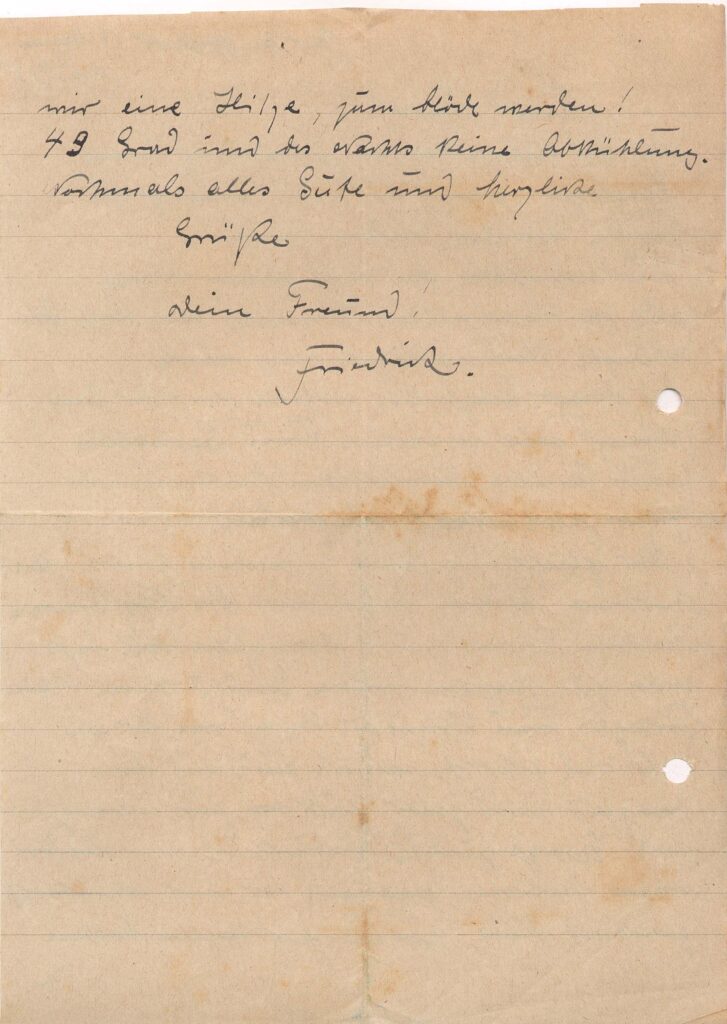 wir eine Hitze, zum blöde werden!
49 Grad und des Nachts keine Abkühlung.
Nochmals alles Gute und herzliche
Grüße
Dein Freund!
Friedrich.